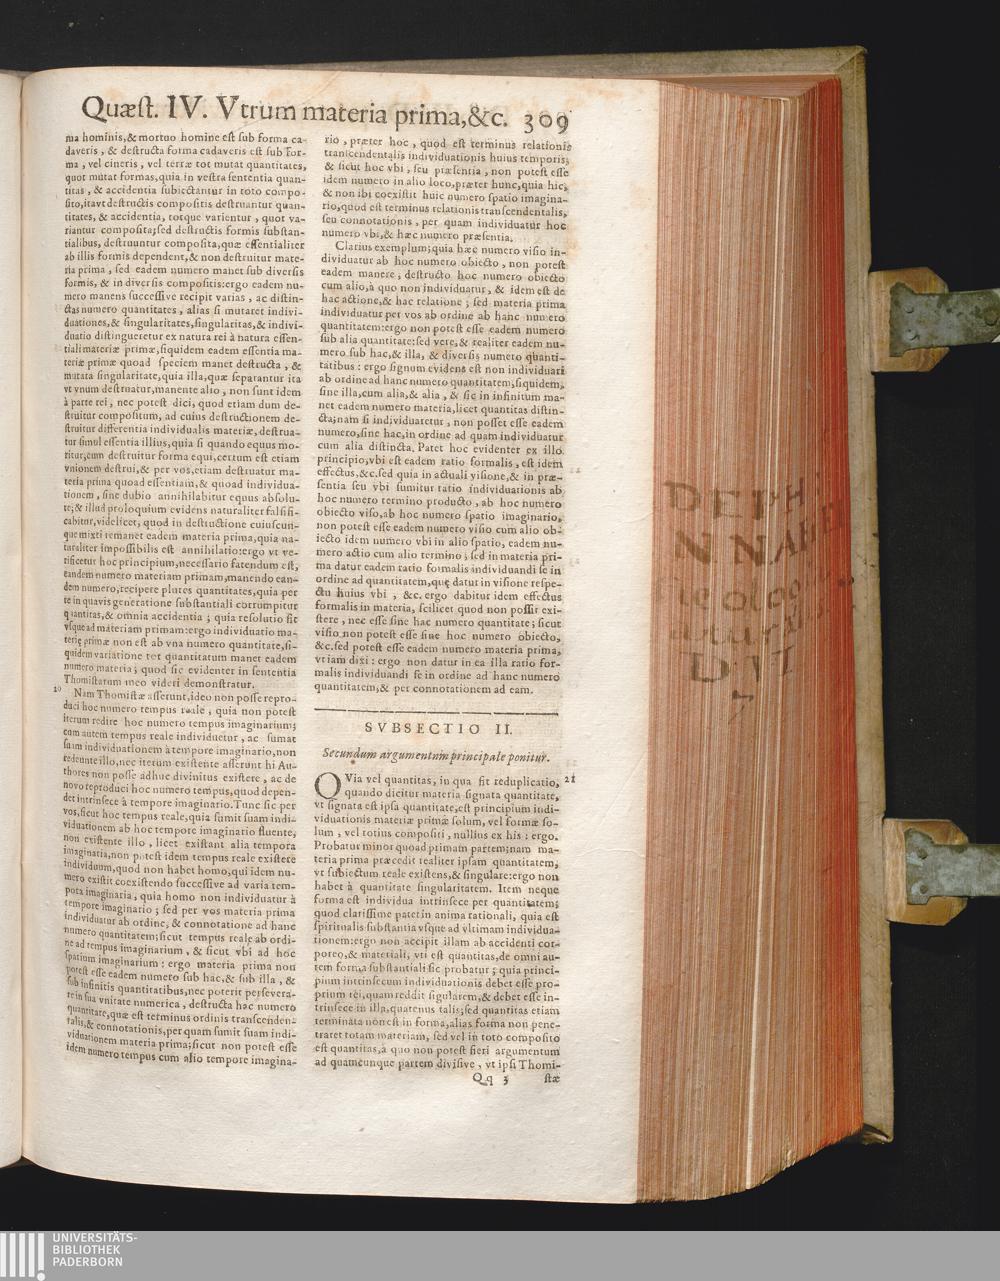 Quæst. IV. Vtrum materia prima,&c. 309
ma hominis,& mortuo homine est sub forma ca-
daveris, & destructa forma cadaveris est sub for-
ma, vel cineris, vel terræ tot mutat quantitates,
quot mutat formas,quia in vestra sententia quan-
titas, & accidentia subiectantur in toto compo-
sito,itavt destructis compositis destruantur quan-
titates, & accidentia, totque varientur, quot va-
riantur composita;sed destructis formis substan-
tialibus, destruuntur composita,quæ essentialiter
ab illis formis dependent,& non destruitur mate-
ria prima, sed eadem numero manet sub diversis
formis, & in diversis compositis:ergo eadem nu-
mero manens successive recipit varias, ac distin-
ctas numero quantitates, alias si mutaret indivi-
duationes,& singularitates,singularitas,& indivi-
duatio distingueretur ex natura rei à natura essen-
tiali materiæ primæ,siquidem eadem essentia ma-
teriæ primæ quoad speciem manet destructa, &
mutata singularitate,quia illa,quæ separantur ita
vt vnum destruatur,manente alio, non sunt idem
à parte rei, nec potest dici, quod etiam dum de-
struitur compositum, ad cuius destructionem de-
struitur differentia individualis materiæ,destrua-
tur simul essentia illius,quia si quando equus mo-
ritur,cum destruitur forma equi,certum est etiam
vnionem destrui,& per vos,etiam destruatur ma-
teria prima quoad essentiam,& quoad individua-
tionem, sine dubio annihilabitur equus absolu-
te;& illud proloquium evidens naturaliter falsifi-
cabitur,videlicet, quod in destructione cuiuscun-
que mixti remanet eadem materia prima,quia na-
turaliter impossibilis est annihilatio:ergo vt ve-
rificetur hoc principium,necessario fatendum est,
eandem numero materiam primam,manendo ean-
dem numero,recipere plures quantitates,quia per
te in quavis generatione substantiali corrumpitur
quantitas,& omnia accidentia; quia resolutio fit
vsque ad materiam primam:ergo individuatio ma-
teriæ primæ non est ab vna numero quantitate,si-
quidem variatione tot quantitatum manet eadem
numero materia; quod sic evidenter in sententia
Thomistarum meo videri demonstratur.
20 Nam Thomistæ asserunt,ideo non posse repro-
duci hoc numero tempus reale, quia non potest
iterum redire hoc numero tempus imaginarium;
cum autem tempus reale individuetur, ac sumat
suam individuationem à tempore imaginario,non
redeunte illo,nec iterum existente asserunt hi Au-
thores non posse adhuc divinitus existere, ac de
novo reproduci hoc numero tempus,quod depen-
det intrinsece à tempore imaginario.Tunc sic per
vos,sicut hoc tempus reale,quia sumit suam indi-
viduationem ab hoc tempore imaginario fluente,
non existente illo, licet existant alia tempora
imaginatia,non potest idem tempus reale existere
individuum,quod non habet homo,qui idem nu-
mero existit coexistendo successive ad varia tem-
pora imaginaria, quia homo non individuatur à
tempore imaginario; sed per vos materia prima
individuatur ab ordine, & connotatione ad hanc
numero quantitatem;sicut tempus reale ab ordi-
ne ad tempus imaginarium, & sicut vbi ad hoc
spatium imaginarium: ergo materia prima non
potest esse eadem numero sub hac,& sub illa, &
sub infinitis quantitatibus,nec poterit persevera-
re in sua vnitate numerica, destructa hac numero
quantitate,quæ est terminus ordinis transcenden-
talis,& connotationis,per quam sumit suam indi-
viduationem materia prima;sicut non potest esse
idem numero tempus cum alio tempore imagina-
rio, præter hoc, quod est terminus relationis
transcendentalis individuationis huius temporis;
& sicut hoc vbi, seu præsentia, non potest esse
idem numero in alio loco,præter hunc,quia hic,
& non ibi coexistit huic numero spatio imagina-
rio,quod est terminus relationis transcendentalis,
seu connotationis, per quam individuatur hoc
numero vbi,& hæc numero præsentia.
Clarius exemplum;quia hæc numero visio in-
dividuatur ab hoc numero obiecto, non potest
eadem manere, destructo hoc numero obiecto
cum alio,à quo non individuatur, & idem est de
hac actione,& hac relatione; sed materia prima
individuatur per vos ab ordine ab hanc numero
quantitatem:ergo non potest esse eadem numero
sub alia quantitate:sed vere,& realiter eadem nu-
mero sub hac,& illa, & diversis numero quanti-
tatibus: ergo signum evidens est non individuari
ab ordine ad hanc numero quantitatem,siquidem,
sine illa,cum alia,& alia, & sic in infinitum ma-
net eadem numero materia,licet quantitas distin-
cta;nam si individuaretur, non posset esse eadem
numero,sine hac,in ordine ad quam individuatur
cum alia distincta. Patet hoc evidenter ex illo
principio,vbi est eadem ratio formalis, est idem
effectus,&c.sed quia in actuali visione,& in præ-
sentia seu vbi sumitur ratio individuationis ab
hoc numero termino producto, ab hoc numero
obiecto viso,ab hoc numero spatio imaginario,
non potest esse eadem numero visio cum alio ob-
iecto idem numero vbi in alio spatio, eadem nu-
mero actio cum alio termino; sed in materia pri-
ma datur eadem ratio formalis individuandi se in
ordine ad quantitatem,quę datur in visione respe-
ctu huius vbi, &c. ergo dabitur idem effectus
formalis in materia, scilicet quod non possit exi-
stere, nec esse sine hac numero quantitate; sicut
visio non potest esse sine hoc numero obiecto,
&c.sed potest esse eadem numero materia prima,
vt iam dixi: ergo non datur in ea illa ratio for-
malis individuandi se in ordine ad hanc numero
quantitatem,& per connotationem ad eam.
SVBSECTIO II.
Secundum argumentum principale ponitur.
QVia vel quantitas, in qua fit reduplicatio, 21
quando dicitur materia signata quantitate,
vt signata est ipsa quantitate,est principium indi-
viduationis materiæ primæ solum, vel formæ so-
lum, vel totius compositi, nullius ex his: ergo.
Probatur minor quoad primam partem;nam ma-
teria prima præcedit realiter ipsam quantitatem,
vt subiectum reale existens,& singulare:ergo non
habet à quantitate singularitatem. Item neque
forma est individua intrinsece per quantitatem;
quod clarissime patet in anima rationali, quia est
spiritualis substantia vsque ad vltimam individua-
tionem:ergo non accipit illam ab accidenti cor-
poreo,& materiali, vti est quantitas,de omni au-
tem forma substantiali sic probatur; quia princi-
pium intrinsecum individuationis debet esse pro-
prium rei,quam reddit sigularem,& debet esse in-
trinsece in illa,quatenus talis;sed quantitas etiam
terminata non est in forma,alias forma non pene-
traret totam materiam, sed vel in toto composito
est quantitas,à quo non potest fieri argumentum
ad quamcunque partem divisive, vt ipsi Thomi-
Qq 3 stæ
D VI
7
UNIVERSITÄTS-
BIBLIOTHEK
PADERBORN